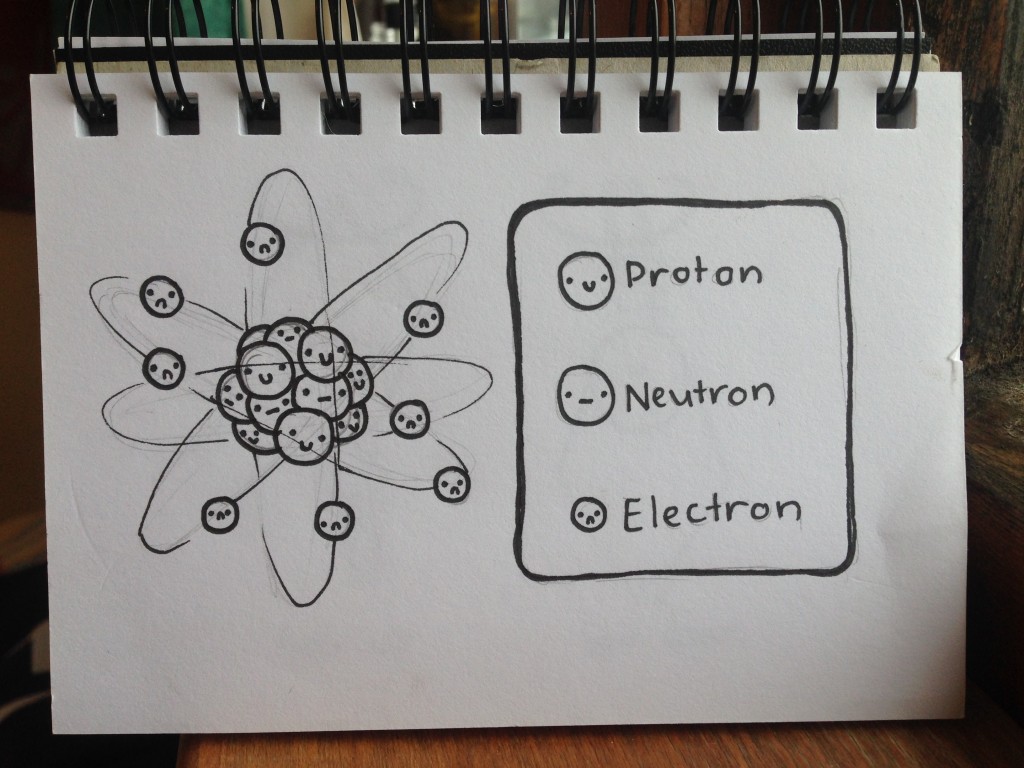 Proton
Neutron
Electron